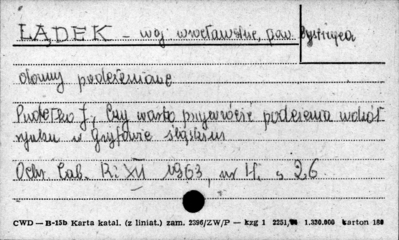 LĄDEK – woj. wrocławskie, pow. Bystrzyca
domy podcieniowe
Pudełko J., Czy warto przywrócić podcienia wokół
rynku w Gryfowie Śląskim
Ochr. Zab. R: XVI 1963, nr 4, s 26
CWD — B-15b Karta katal. (z liniat.) zam. 2396/ZW/P — kzg 1 2251, 1.330.000 karton